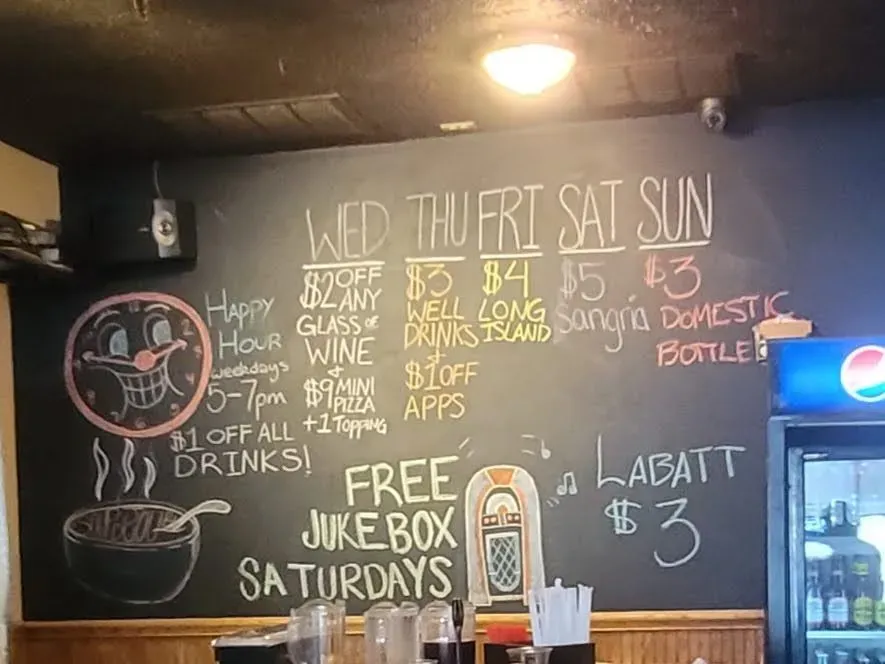 WED THU FRI SAT SUN
$2 OFF ANY
GLASS OF
WINE
&
$9 MINI PIZZA
+1 TOPPING
$3
WELL
DRINKS
&
$1 OFF
APPS
$4
LONG
ISLAND
$5
Sangria
$3
DOMESTIC
BOTTLE
HAPPY
HOUR
weekdays
5-7pm
$1 OFF ALL
DRINKS!
FREE
JUKEBOX
SATURDAYS
LABATT
$3